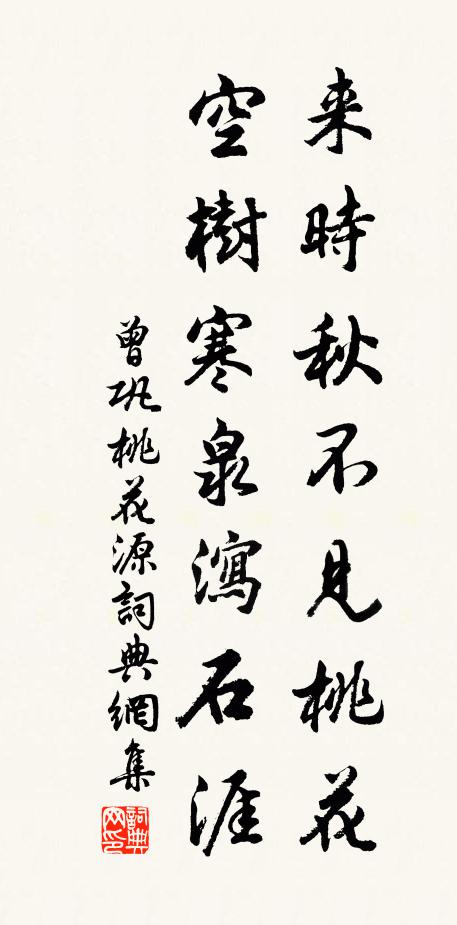 来時秋不見桃花
空樹寒泉瀉石涯
曾巩桃花源詞典網集
詞典网印